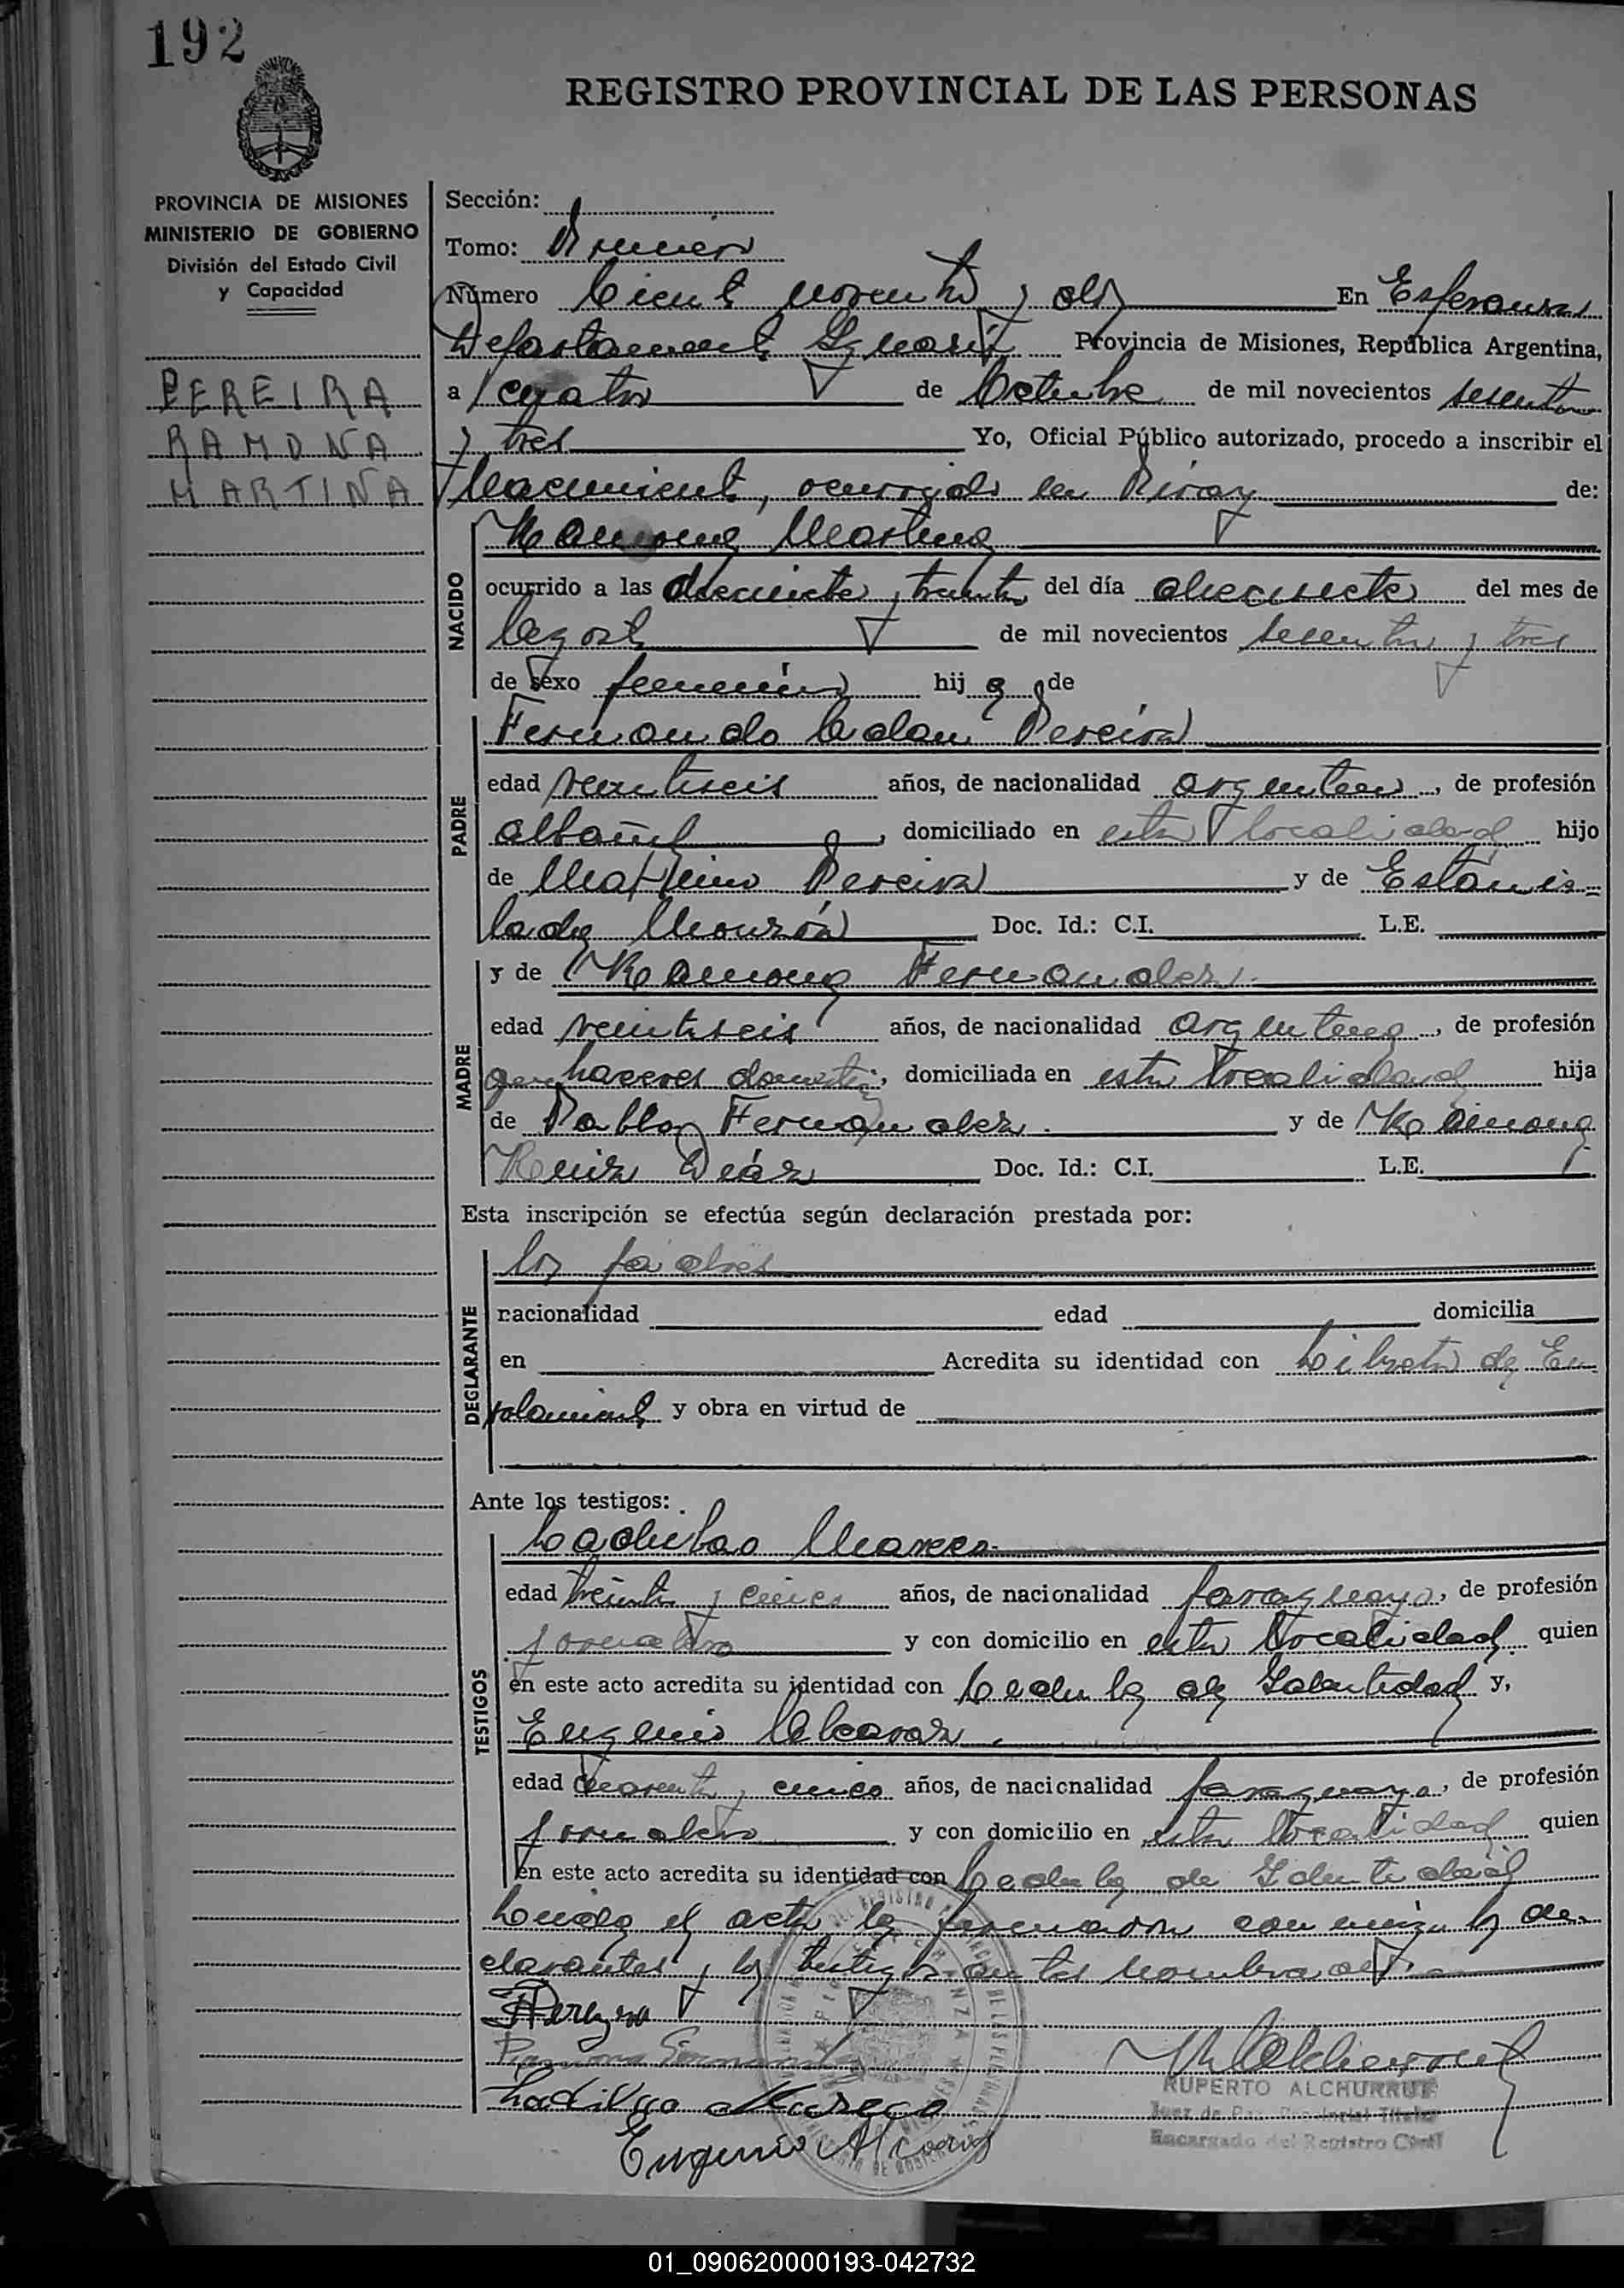 192
REGISTRO PROVINCIAL DE LAS PERSONAS
PROVINCIA DE MISIONES
MINISTERIO DE GOBIERNO
División del Estado Civil
y Capacidad
PEREIRA
RAMONA
MARTINA
Sección:
Tomo: Primero
Número Ciento noventa y dos En Esperanza
Departamento Iguazú Provincia de Misiones, República Argentina,
a cuatro de Octubre de mil novecientos sesenta
y tres Yo, Oficial Público autorizado, procedo a inscribir el
Nacimiento, ocurrido en Piray de:
NACIDO
Ramona Martina
ocurrido a las diecisiete y treinta del día diecisiete del mes de
Agosto de mil novecientos sesenta y tres
de sexo femenino hij a de
PADRE
Fernando Adan Pereira
edad veintiseis años, de nacionalidad argentino, de profesión
albañil, domiciliado en esta localidad hijo
de Pereira y de Estanis=
lada Monzón Doc. Id.: C.I. L.E.
MADRE
y de Ramona Fernandez
edad veintiseis años, de nacionalidad argentina, de profesión
quehaceres domestico, domiciliada en esta localidad hija
de Pablo Fernandez y de Ramona
Ruiz Diáz Doc. Id.: C.I. L.E.
Esta inscripción se efectúa según declaración prestada por:
DECLARANTE
los padres
nacionalidad edad domicilia
en Acredita su identidad con Libreta de En
rolamiento y obra en virtud de
Ante los testigos:
TESTIGOS
Ladislao Mareco
edad treinta y cinco años, de nacionalidad paraguaya, de profesión
jornalero y con domicilio en esta localidad quien
en este acto acredita su identidad con Cedula de Identidad y,
Eugenio Alcaraz
edad cuarenta y cinco años, de nacionalidad paraguaya, de profesión
jornalero y con domicilio en esta localidad quien
en este acto acredita su identidad con Cedula de Identidad
Leida el acta la firmaron conmigo los de
clarantes y los testigos antes nombrados
Ramona Fernandez
Ladislao Mareco
Eugenio Alcaraz
RUPERTO ALCHURRUT
Juez de Paz Provincial Titular
Encargado del Registro Civil
01_090620000193-042732